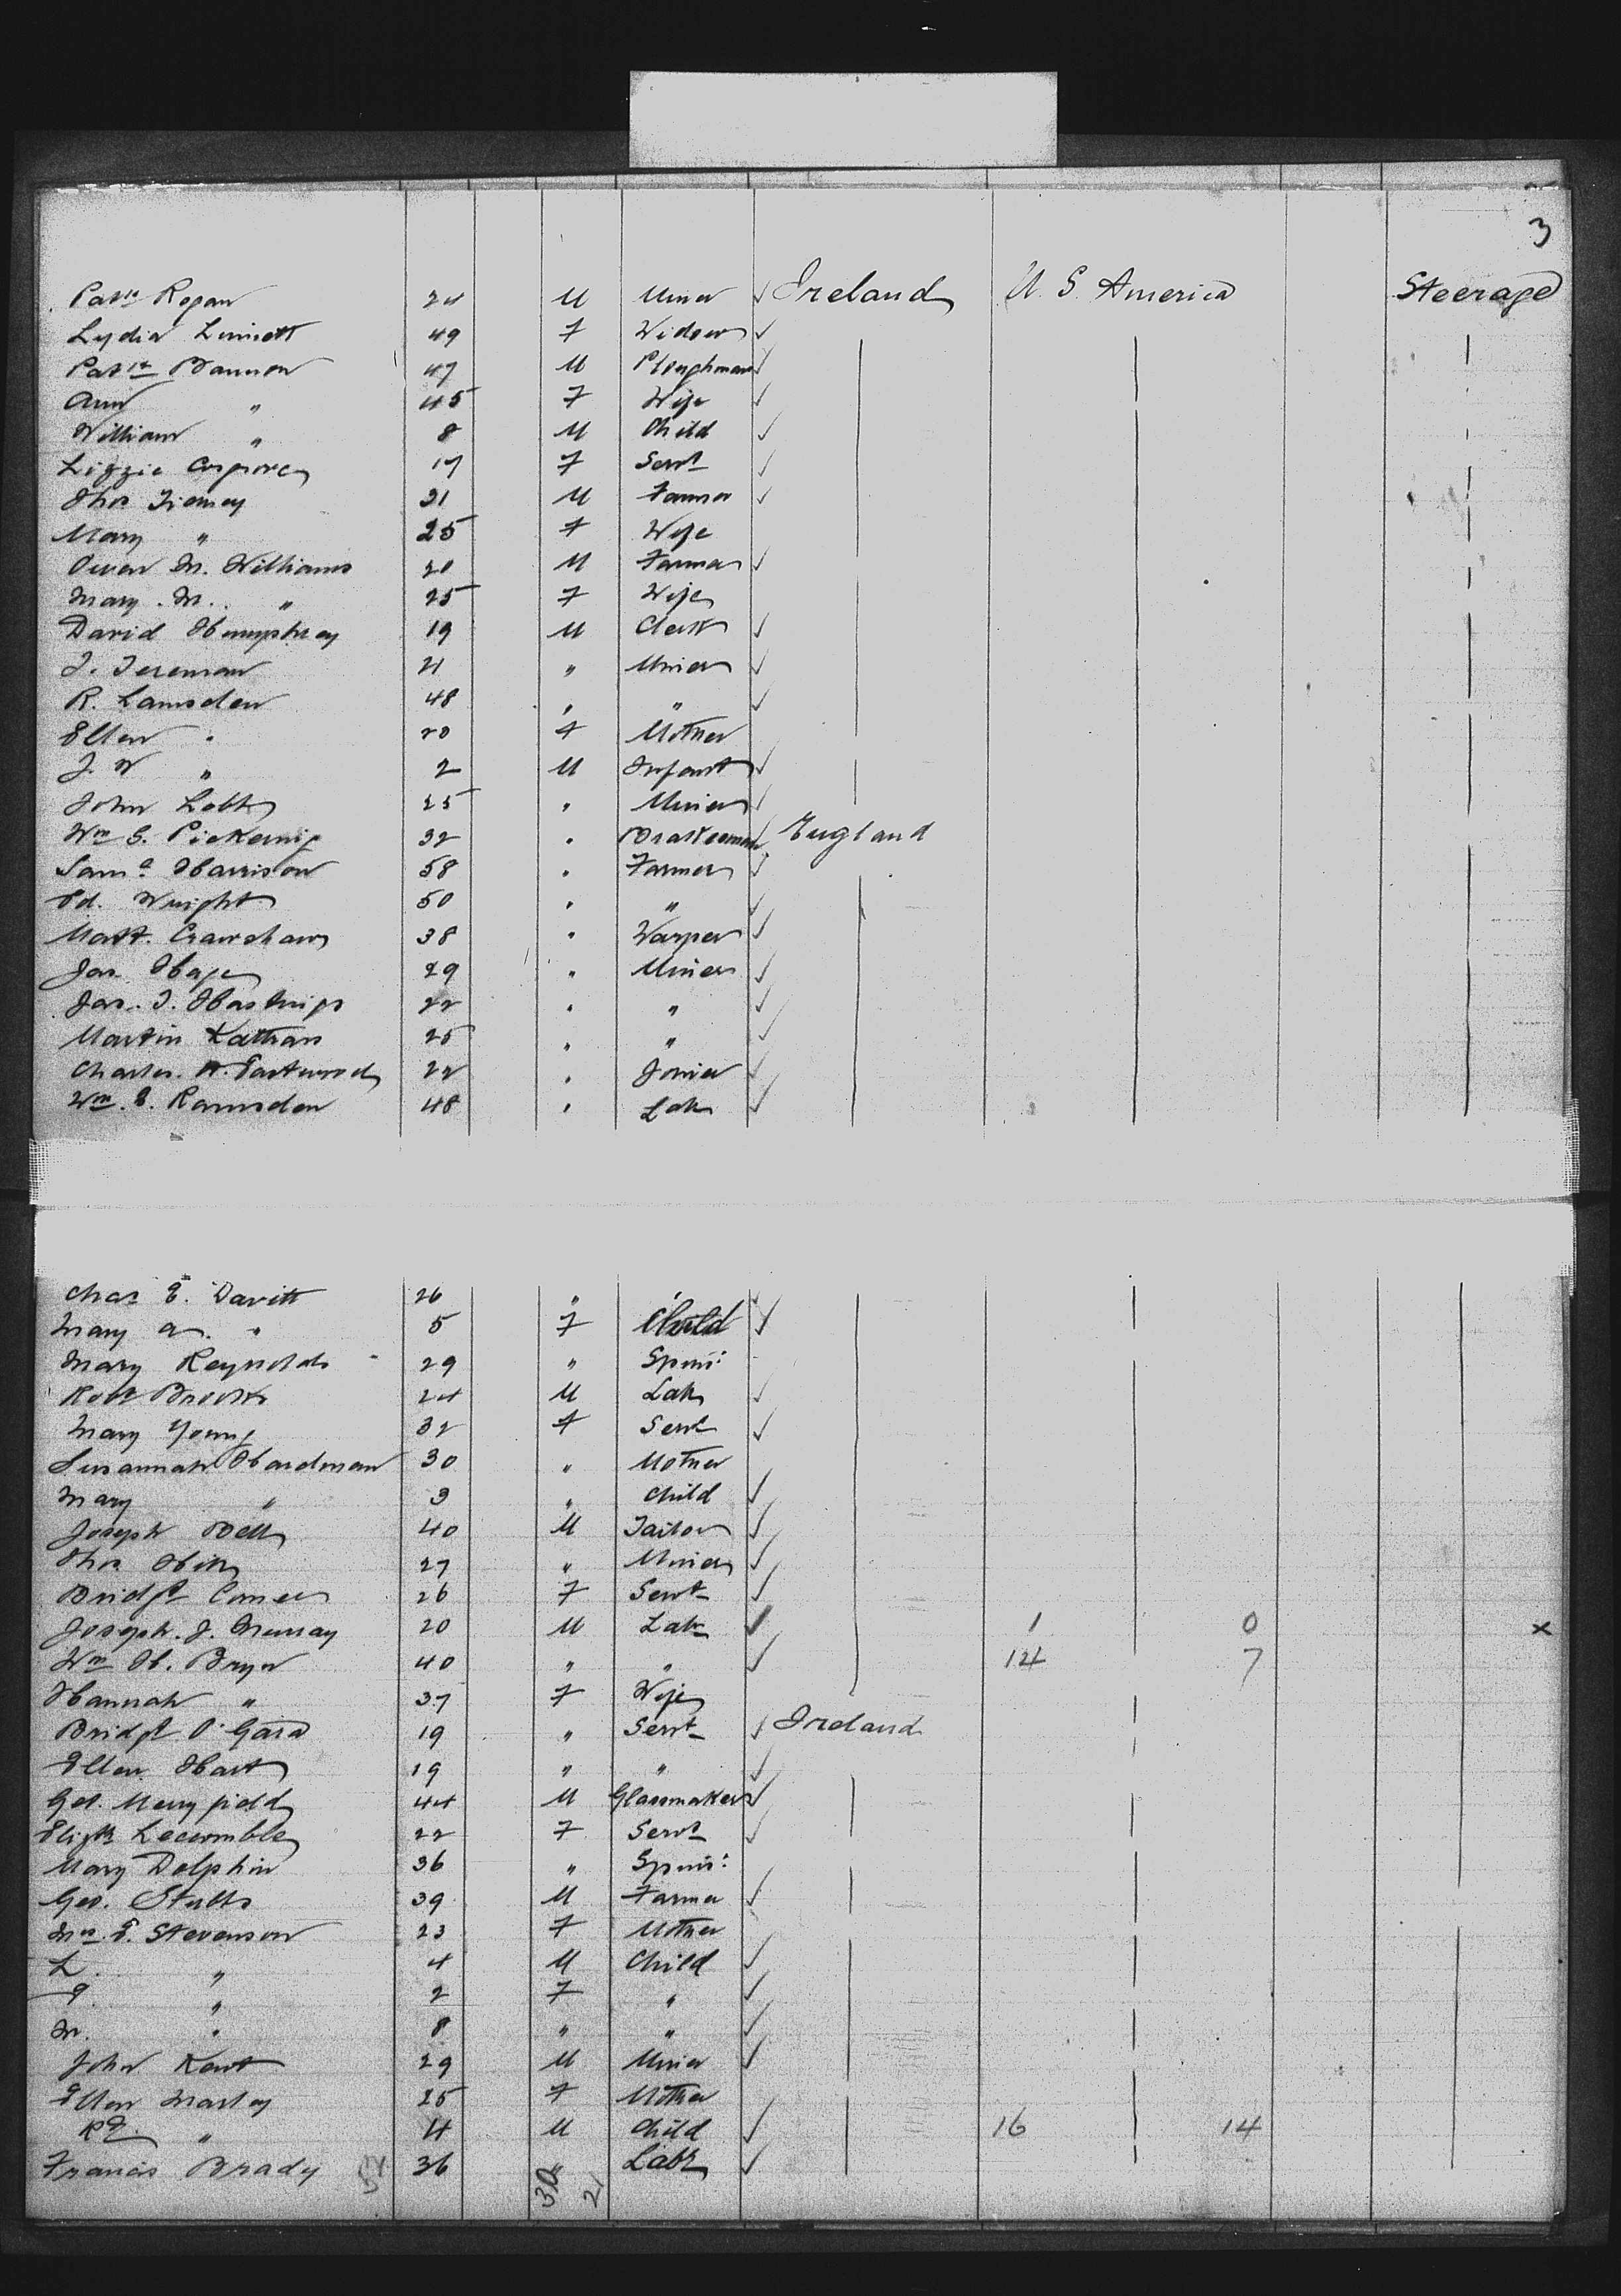 3
Patk Rogan 24 M Miner ✓ Ireland U. S. America Steerage
Lydia 49 F Widow ✓
Patk Bannon 47 M Ploughman ✓
Ann " 45 F Wife ✓
William " 8 M Child ✓
Lizzie Cosgrove 17 F Servt ✓
Thos Tierney 21 M Farmer ✓
Mary " 25 F Wife
Owen M. Williams 20 M Farmer ✓
Mary . M. . " 25 F Wife
David Humphrey 19 M Clerk ✓
21 " Miner ✓
R. Lamsden 48 " " ✓
Ellen " 20 F Mother
J. W " 2 M Infant ✓
John 25 " Miner ✓
Wm G. Pickering 32 " ✓ England
Saml Harrison 58 " Farmer ✓
Ed. Wright 50 " " ✓
Matt. Crawshaw 38 " Warper ✓
Jas. 29 " Miner ✓
Jas. T. Hastings 22 " " ✓
Martin 25 " " ✓
Charles. Eastwood 22 " Joiner ✓
Wm. E. Ramsden 48 " Lab ✓
Chas E. Davitt 26 " " ✓
Mary A. " 5 F Child ✓
Mary Reynolds 29 " Spins:
Robt Brooks 24 M Lab ✓
Mary Young 32 F Servt ✓
Susannah Hardman 30 " Mother
Mary " 3 " Child ✓
Joseph Bell 40 M Tailor ✓
Thos 27 " Miner ✓
Bridgt 26 F Servt ✓
Joseph. J. Murray 20 M Labr ✓ 1 0 x
Wm H. Bryn 40 " " ✓ 14 7
Hannah " 37 F Wife
Bridgt O'Gara 19 " Servt ✓ Ireland
Ellen Hart 19 " " ✓
Geo. Merryfield 44 M Glassmaker ✓
Elizth 22 F Servt ✓
Mary Dolphin 36 " Spins:
Geo. Stubbs 39 M Farmer ✓
Mrs. E. Stevenson 23 F Mother
L. " 4 M Child ✓
" 2 F " ✓
M. " 8 " " ✓
John Kent 29 M Miner ✓
Ellen Marley 25 F Mother
" 4 M Child ✓ 16 14
Francis Brady 36 " Labr ✓
30 21